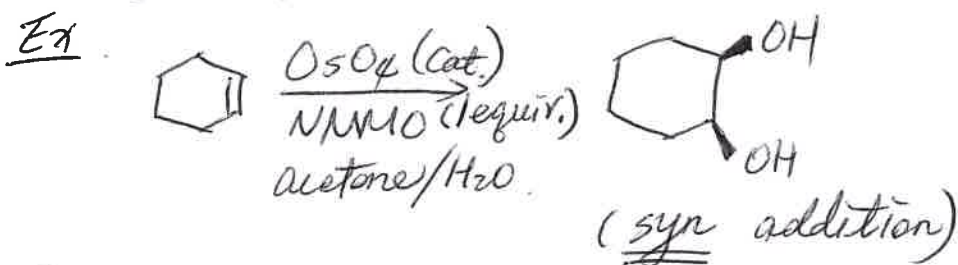 Ex.
OsO4 (Cat.)
NMMO (1equiv.)
acetone/H2O.
OH
OH
(syn addition)